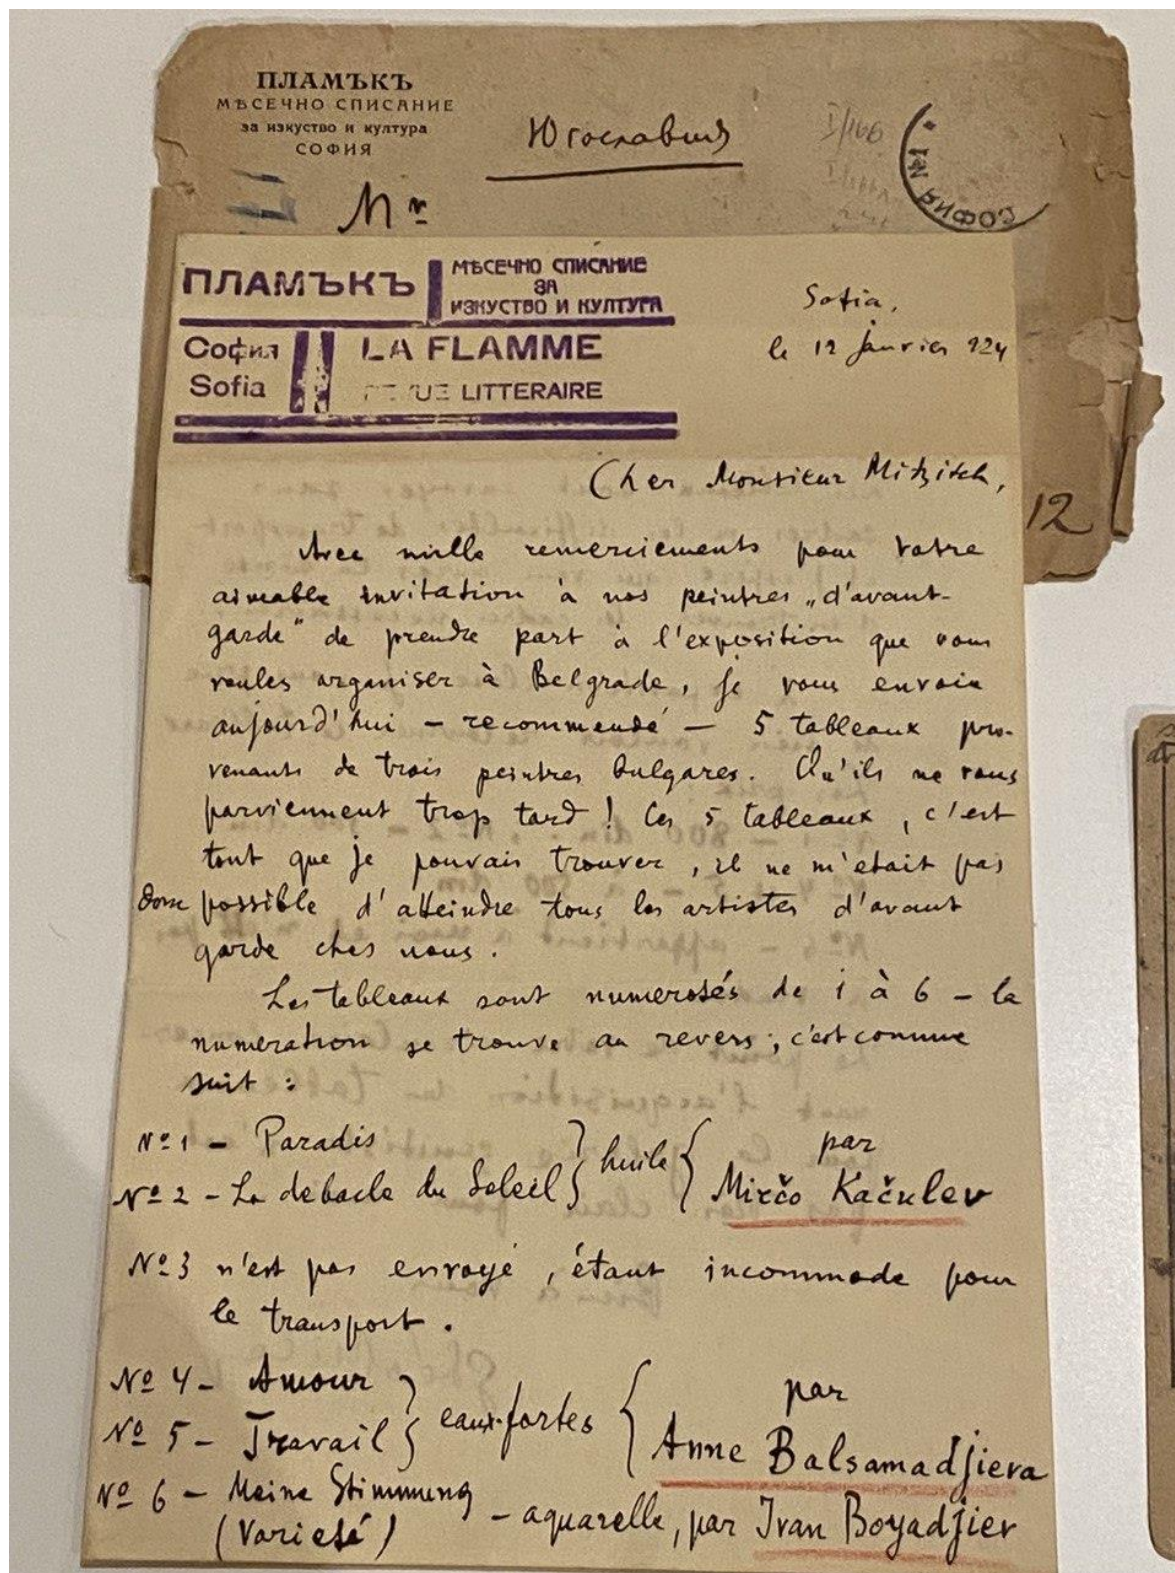 ПЛАМЪКЪ
МѢСЕЧНО СПИСАНИЕ
за изкуство и култура
СОФИЯ
Югославия
СОФИЯ №1
Mr
ПЛАМЪКЪ МѢСЕЧНО СПИСАНИЕ
ЗА
ИЗКУСТВО И КУЛТУРА
София LA FLAMME
Sofia REVUE LITTERAIRE
Sofia,
le 12 janvier 924
Cher Monsieur Mitzitch,
12
Avec mille remerciements pour votre
aimable invitation à nos peintres „d'avant-
garde" de prendre part à l'exposition que vous
voules organiser à Belgrade, je vous envoie
aujourd'hui – recommendé – 5 tableaux pro-
venants de trois peintres bulgares. Qu'ils ne vous
parviennent trop tard ! Ces 5 tableaux, c'est
tout que je pouvais trouver, il ne m'etait pas
donc possible d'atteindre tous les artistes d'avant
garde ches nous.
Les tableaux sont numerotés de 1 à 6 – la
numeration se trouve au revers ; c'est comme
suit :
Nº 1 – Paradis
Nº 2 – La debacle du Soleil } huile { par
Mirčo Kačulev
Nº 3 n'est pas envoyé, étant incommode pour
le transport.
Nº 4 – Amour
Nº 5 – Travail } eaux-fortes { par
Anne Balsamadjieva
Nº 6 – Meine Stimmung
(Varieté) – aquarelle, par Ivan Boyadjiev